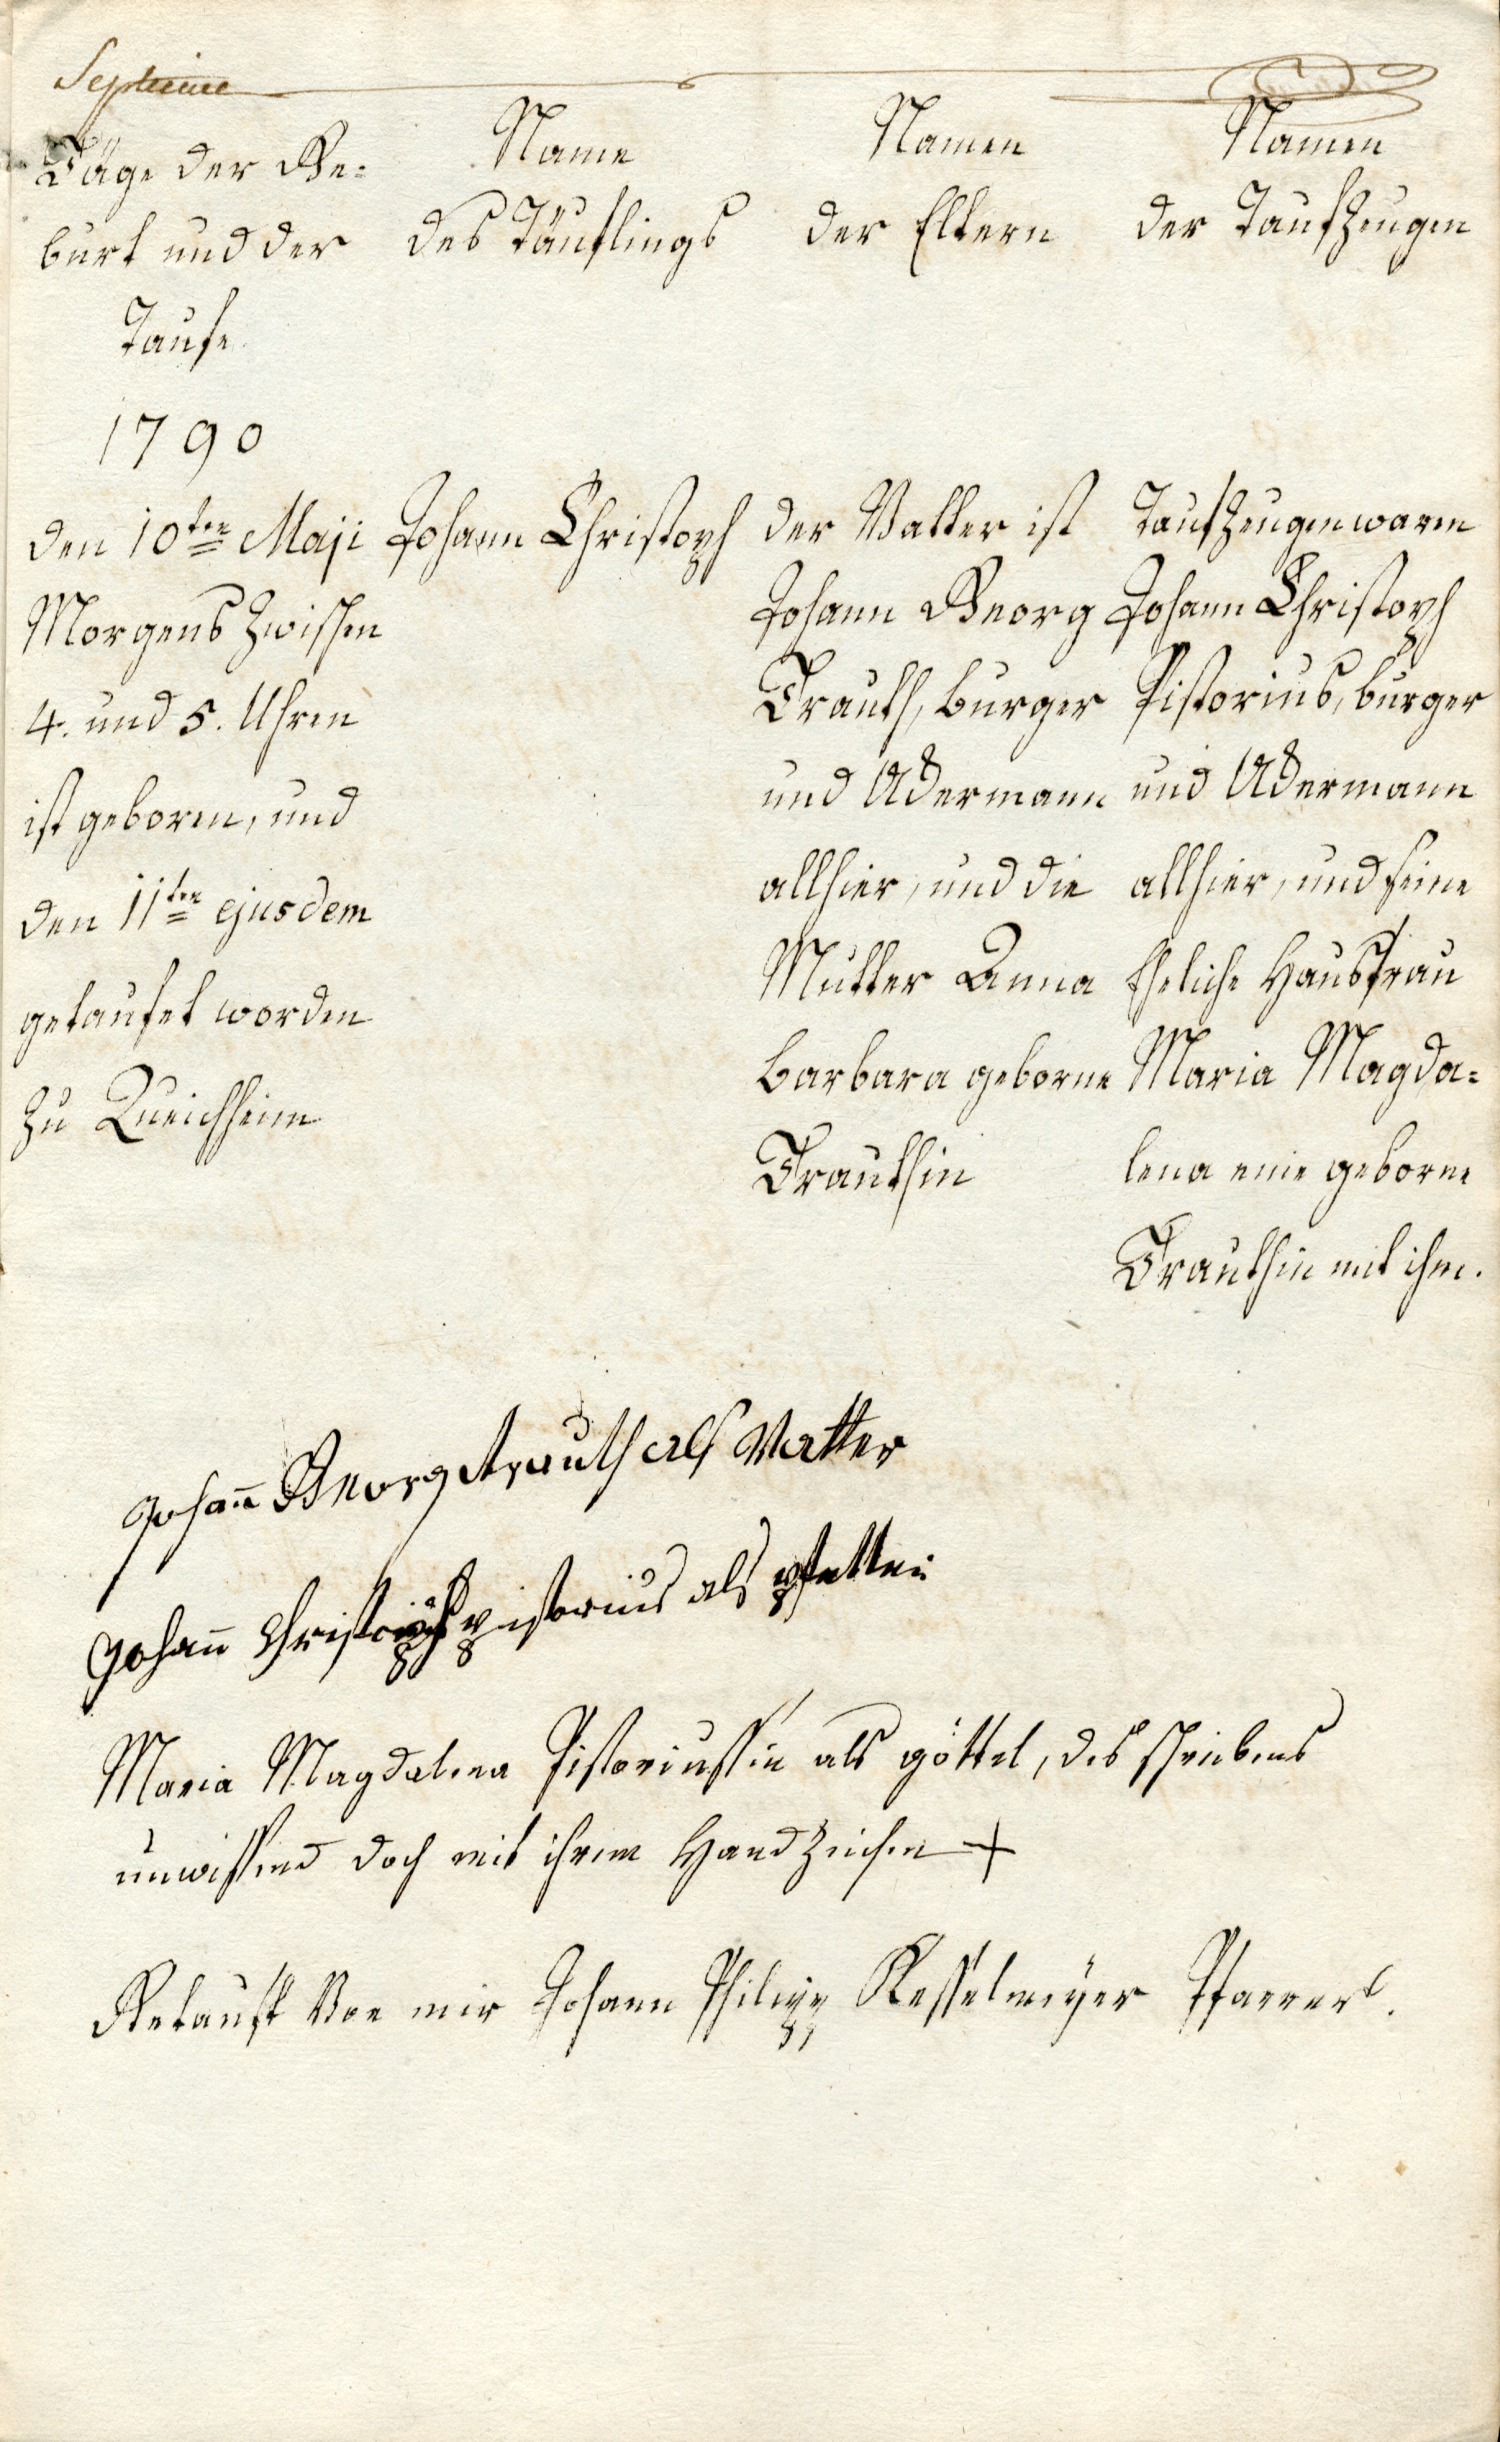 Septieme
Täge der Ge-
burt und der
Taufe.
1790
den 10ten Maji
Morgens zwischen
4. und 5. Uhren
ist geboren, und
den 11ten ejusdem
getaufet worden
zu Queichheim
Name
des Täuflings
Johann Christoph
Namen
der Eltern
der Vatter ist
Johann Georg
Trauth, burger
und Ackermann
allhier, und die
Mutter Anna
Barbara geborne
Trauthin
Namen
der Taufzeugen
Taufzeugen waren
Johann Christoph
Pistorius, burger
und Ackermann
allhier, und seine
Eheliche Hausfrau
Maria Magda-
lena eine geborne
Trauthin mit ihm.
Johann Georg trauth als Vatter
Johann Christoph pistorius als pfetter
Maria Magdalena Pistoriussin als göttel, des schreibens
unwissend doch mit ihrem Handzeichen +
Getauft von mir Johann Philipp Kesselmeyer Pfarrer.